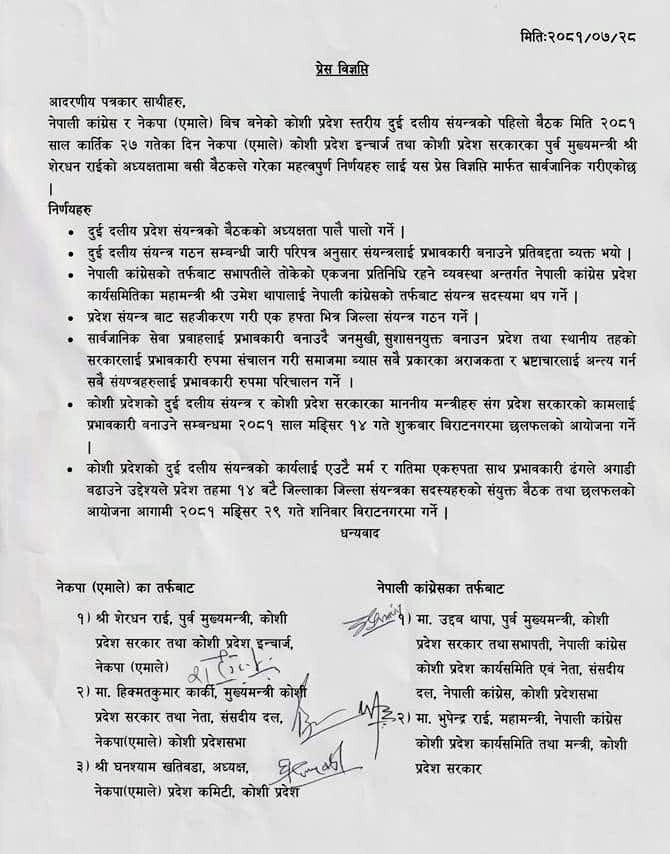 मितिः२०८१/०७/२८
प्रेस विज्ञप्ति
आदरणीय पत्रकार साथीहरु,
नेपाली कांग्रेस र नेकपा (एमाले) बिच बनेको कोशी प्रदेश स्तरीय दुई दलीय संयन्त्रको पहिलो बैठक मिति २०८१
साल कार्तिक २७ गतेका दिन नेकपा (एमाले) कोशी प्रदेश इन्चार्ज तथा कोशी प्रदेश सरकारका पुर्व मुख्यमन्त्री श्री
शेरधन राईको अध्यक्षतामा बसी बैठकले गरेका महत्वपुर्ण निर्णयहरु लाई यस प्रेस विज्ञप्ति मार्फत सार्वजानिक गरीएकोछ
|
निर्णयहरु
• दुई दलीय प्रदेश संयन्त्रको बैठकको अध्यक्षता पालै पालो गर्ने |
• दुई दलीय संयन्त्र गठन सम्बन्धी जारी परिपत्र अनुसार संयन्त्रलाई प्रभावकारी बनाउने प्रतिवद्दता व्यक्त भयो |
• नेपाली कांग्रेसको तर्फबाट सभापतीले तोकेको एकजना प्रतिनिधि रहने व्यवस्था अन्तर्गत नेपाली कांग्रेस प्रदेश
कार्यसमितिका महामन्त्री श्री उमेश थापालाई नेपाली कांग्रेसको तर्फबाट संयन्त्र सदस्यमा थप गर्ने |
• प्रदेश संयन्त्र बाट सहजीकरण गरी एक हप्ता भित्र जिल्ला संयन्त्र गठन गर्ने |
• सार्वजानिक सेवा प्रवाहलाई प्रभावकारी बनाउदै जनमुखी, सुशासनयुक्त बनाउन प्रदेश तथा स्थानीय तहको
सरकारलाई प्रभावकारी रुपमा संचालन गरी समाजमा व्याप्त सवै प्रकारका अराजकता र भ्रष्टाचारलाई अन्त्य गर्न
सबै संयण्त्रहरुलाई प्रभावकारी रुपमा परिचालन गर्ने ।
• कोशी प्रदेशको दुई दलीय संयन्त्र र कोशी प्रदेश सरकारका माननीय मन्त्रीहरु संग प्रदेश सरकारको कामलाई
प्रभावकारी बनाउने सम्बन्धमा २०८१ साल मङ्सिर १४ गते शुक्रबार बिराटनगरमा छलफलको आयोजना गर्ने
|
• कोशी प्रदेशको दुई दलीय संयन्त्रको कार्यलाई एउटै मर्म र गतिमा एकरुपता साथ प्रभावकारी ढंगले अगाडी
बढाउने उद्देश्यले प्रदेश तहमा १४ वटै जिल्लाका जिल्ला संयन्त्रका सदस्यहरुको संयुक्त बैठक तथा छलफलको
आयोजना आगामी २०८१ मङ्सिर २९ गते शनिबार बिराटनगरमा गर्ने |
धन्यवाद
नेकपा (एमाले) का तर्फबाट
१) श्री शेरधन राई, पुर्व मुख्यमन्त्री, कोशी
प्रदेश सरकार तथा कोशी प्रदेश इन्चार्ज,
नेकपा (एमाले)
२) मा. हिक्मतकुमार कार्की, मुख्यमन्त्री कोशी
प्रदेश सरकार तथा नेता, संसदीय दल,
नेकपा(एमाले) कोशी प्रदेशसभा
३) श्री घनश्याम खतिवडा, अध्यक्ष,
नेकपा(एमाले) प्रदेश कमिटी, कोशी प्रदेश
नेपाली कांग्रेसका तर्फबाट
१) मा. उद्दव थापा, पुर्व मुख्यमन्त्री, कोशी
प्रदेश सरकार तथा सभापती, नेपाली कांग्रेस
कोशी प्रदेश कार्यसमिति एवं नेता, संसदीय
दल, नेपाली कांग्रेस, कोशी प्रदेशसभा
२) मा. भुपेन्द्र राई, महामन्त्री, नेपाली कांग्रेस
कोशी प्रदेश कार्यसमिति तथा मन्त्री, कोशी
प्रदेश सरकार